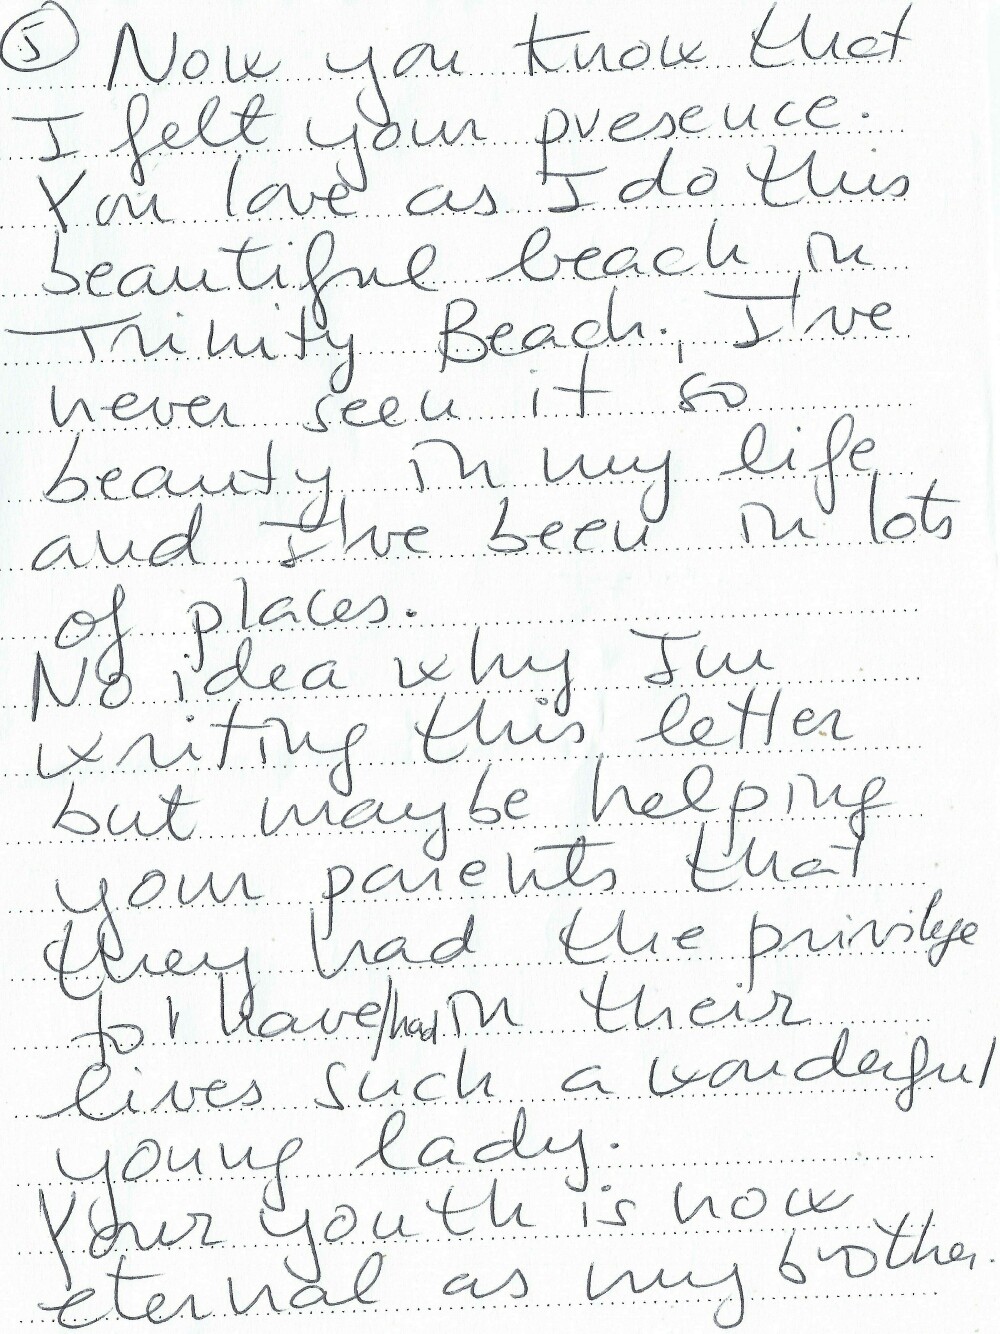 5 Now you know that
I felt your presence.
You love as I do this
beautiful beach in
Trinity Beach. I've
never seen it so
beauty in my life
and I've been in lots
of places.
No idea why I'm
writing this letter
but maybe helping
your parents that
they had the privilege
to have/had in their
lives such a wonderful
young lady.
Your youth is now
eternal as my brother.